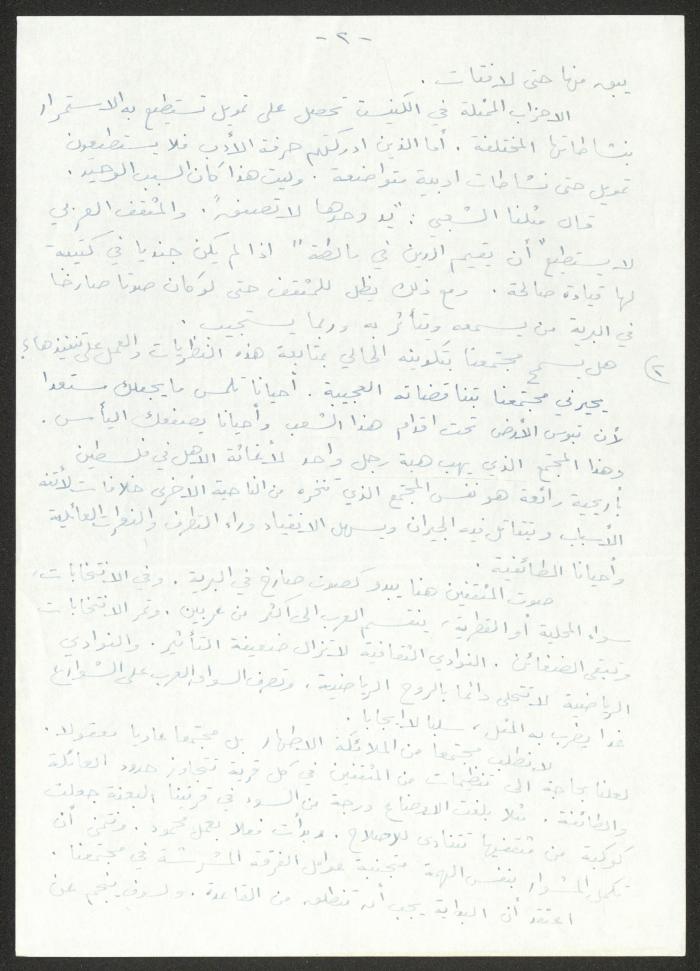 - ٢ -
يبق منها حتى لافتات .
الاحزاب الممثلة في الكنيست تحصل على تمويل تستطيع به الاستمرار
بنشاطاتها المختلفة . أما الذين ادركتهم حرفة الأدب فلا يستطيعون
تمويل حتى نشاطات ادبية متواضعة . وليت هذا كان السبب الوحيد .
قال مثلنا الشعبي : "يد وحدها لا تصفق". والمثقف العربي
لا يستطيع "أن يقيم الدين في مالطة" اذا لم يكن جنديا في كتيبة
لها قيادة صالحة . ومع ذلك يظل للمثقف حتى لو كان صوتا صارخا
في البرية من يسمعه ويتأثر به وربما يستجيب .
٢) هل يسمح مجتمعنا بتكوينه الحالي بمتابعة هذه النظريات والعمل على تنفيذها؟
يحيرني مجتمعنا بتناقضاته العجيبة . أحيانا تلمس ما يجعلك مستعدا
لأن تبوس الأرض تحت اقدام هذا الشعب وأحيانا يصفعك اليأس .
وهذا المجتمع الذي يهب هبة رجل واحد لأغاثة الاهل في فلسطين
بأريحية رائعة هو نفس المجتمع الذي تنخره من الناحية الأخرى خلافات لأتفه
الأسباب ويتقاتل فيه الجيران ويسهل الانقياد وراء التطرف والنعرات العائلية
وأحيانا الطائفية .
صوت المثقفين هنا يبدو كصوت صارخ في البرية . وفي الانتخابات،
سواء المحلية أو القطرية، ينقسم العرب الى أكثر من عربين . وتمر الانتخابات
وتبقى الضغائن . النوادي الثقافية لا تزال ضعيفة التأثير . والنوادي
الرياضية لا تتحلى دائما بالروح الرياضية، وتصرف السواق العرب على الشوارع
غدا يضرب به المثل، سلبا لا ايجابا .
لا نطلب مجتمعا من الملائكة الاطهار بل مجتمعا عاديا معقولا .
لعلنا بحاجة الى تنظيمات من المثقفين في كل قرية تتجاوز حدود العائلة
والطائفة . مثلا بلغت الاوضاع درجة من السوء في قريتنا البعنة جعلت
كوكبة من مثقفيها تتنادى للاصلاح . وبدأت فعلا بعمل محمود . ونتمنى أن
تكمل المشوار بنفس الهمة متجنبة عوامل الفرقة المشرشة في مجتمعنا .
اعتقد أن البداية يجب أن تنطلق من القاعدة . ولسوف ينجم عن